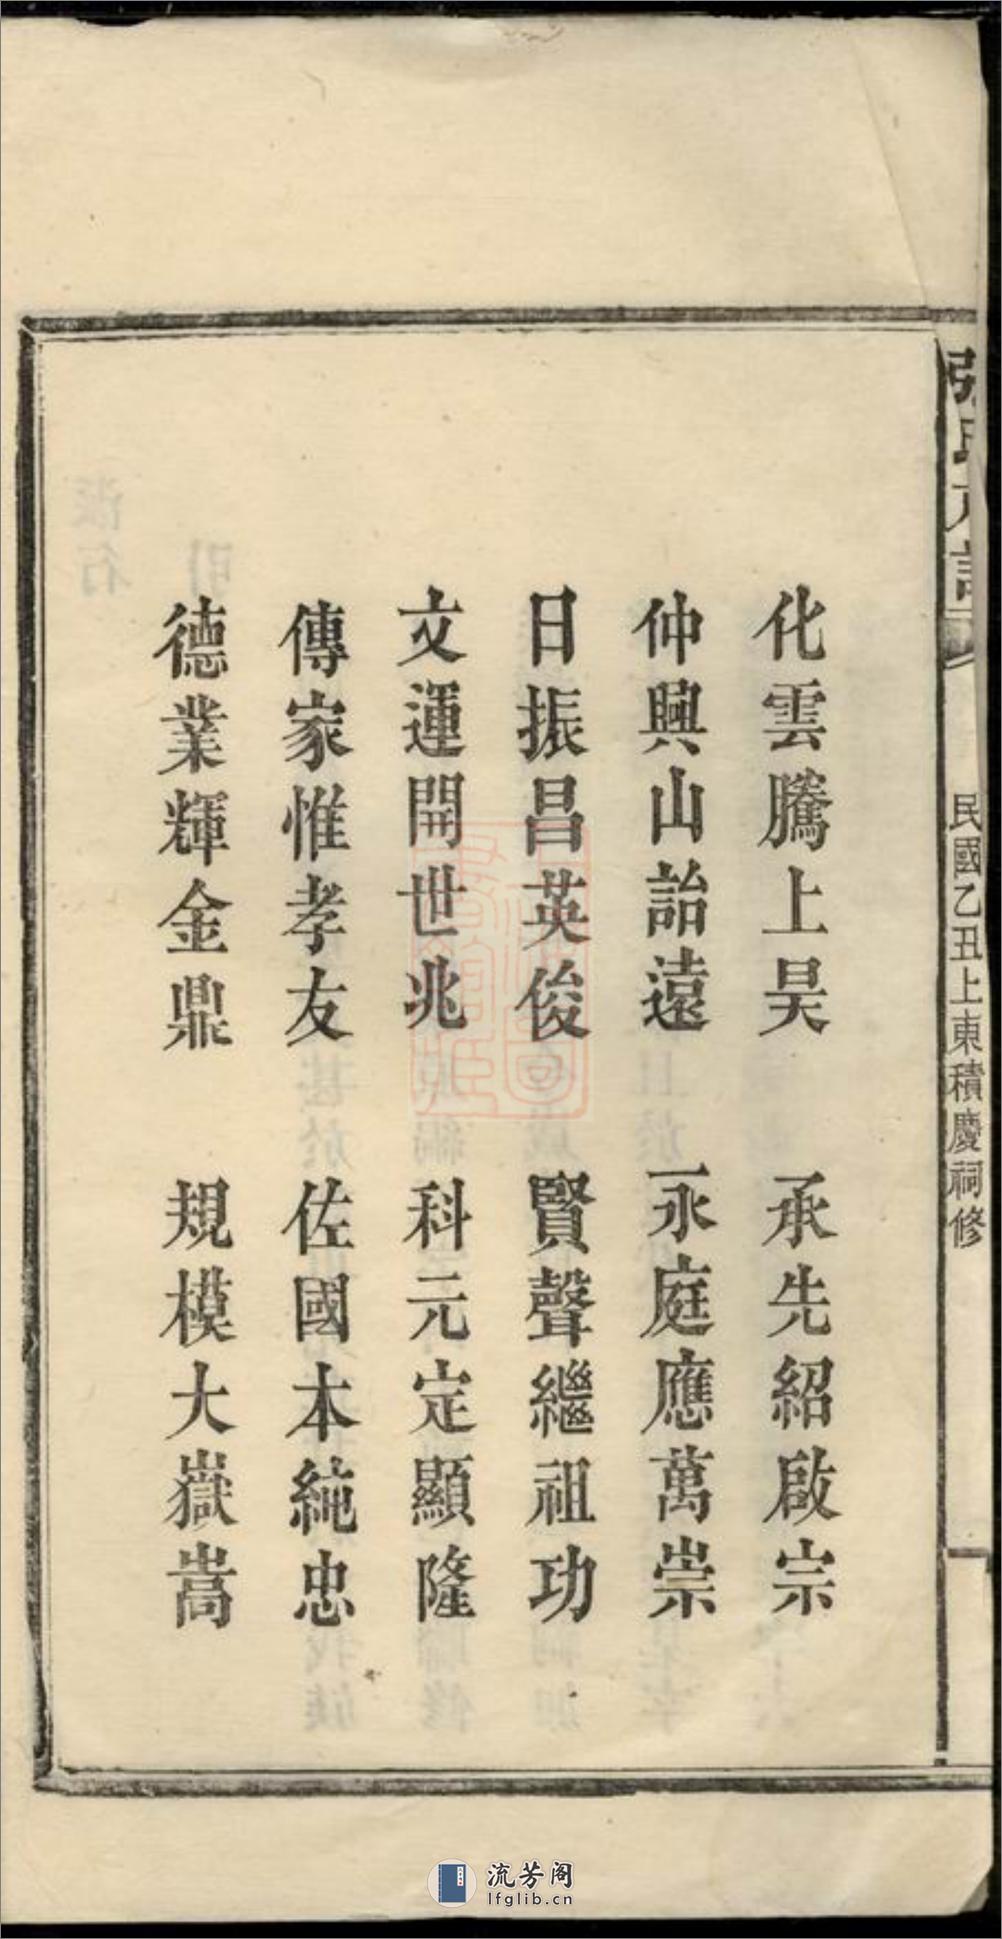 張氏六譜
民國乙丑上東積慶祠修
化雲騰上昊 承先紹啟宗
仲興山詒遠 永庭應萬崇
日振昌英俊 賢聲繼祖功
文運開世兆 科元定顯隆
傳家惟孝友 佐國本純忠
德業輝金鼎 規模大嶽嵩
流芳阁
lfglib.cn